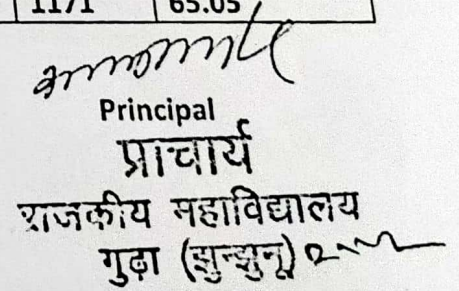 1171 65.05
Principal
प्राचार्य
राजकीय महाविद्यालय
गुढ़ा (झुन्झुनू)